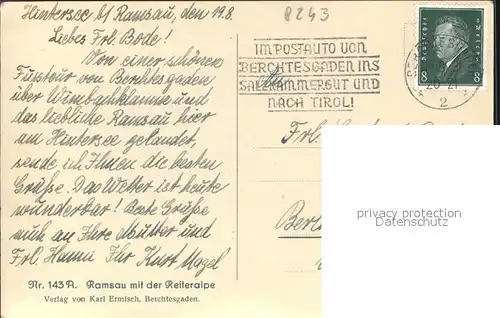 Hintersee b/ Ramsau, den 19.8.
8243
Liebes Frl. Bode!
Von einer schönen
Fusstour von Berchtesgaden
über Wimbachklamm und
das liebliche Ramsau hier
am Hintersee gelandet,
sende ich Ihnen die besten
Grüße. Das Wetter ist heute
wunderbar! Beste Grüße
auch an Ihre Mutter und
Frl. Hanni Ihr Kurt
Nr. 143 A. Ramsau mit der Reiteralpe
Verlag von Karl Ermisch, Berchtesgaden.
IM POSTAUTO VON
BERCHTESGADEN INS
SALZKAMMERGUT UND
NACH TIROL!
DEUTSCHES REICH
8 8
2
Frl.
Berl
privacy protection
watermark